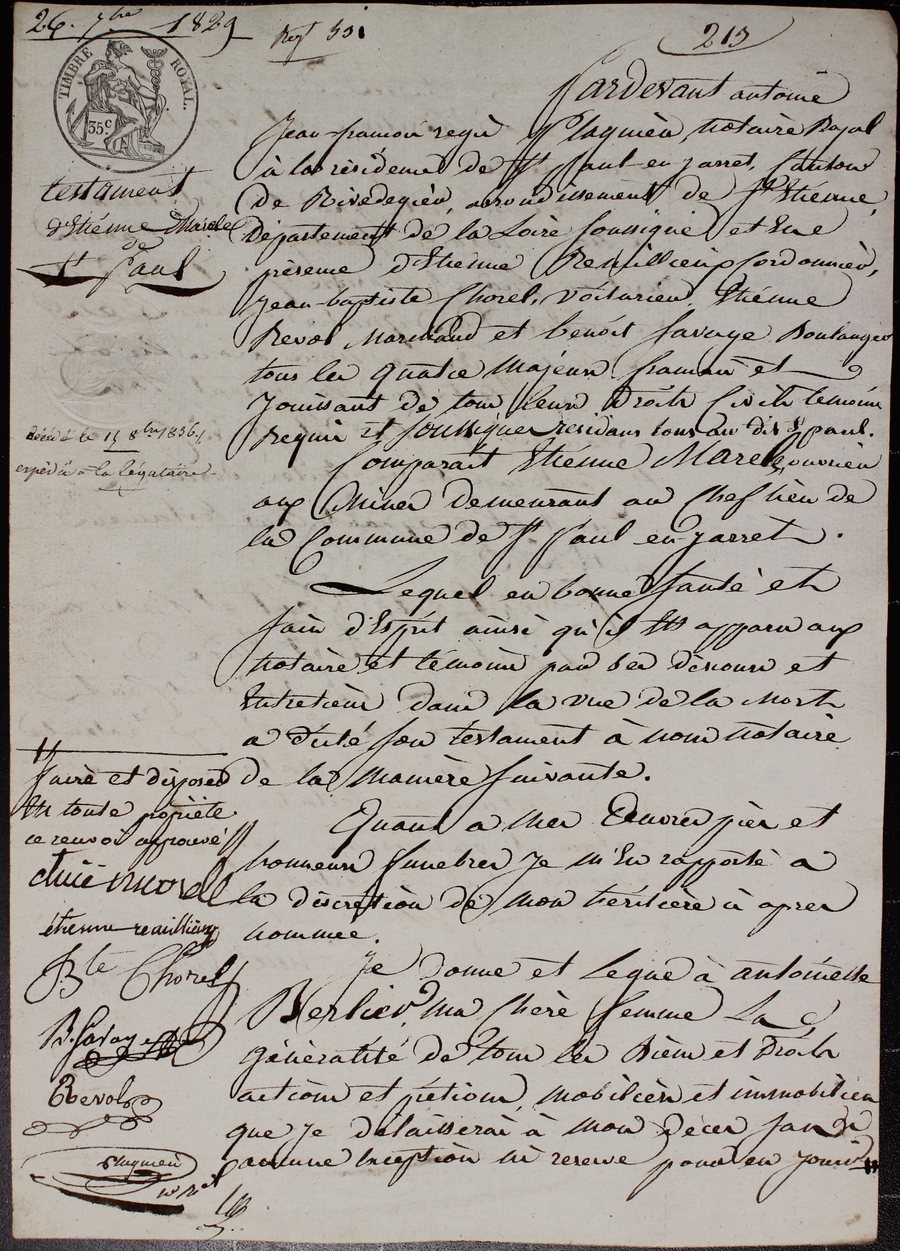 26. 7bre 1829
Regt 331
213
TIMBRE ROYAL.
35c
testament
d'Etiénne Marel
de
St Paul
décédé le 15 8bre 1836
expédié à la légataire
Pardevant antoine
Jean-francois regis Plagnieu, notaire Royal
à la résidence de St Paul-en-jarret, Canton
de Rivedegier, arrondissement de St Etiénne,
Département de la Loire soussigné et En
présence d'Etiénne Remillieux Cordonnier,
Jean-baptiste Chorel, voiturier, Etiénne
Revol Marchand et benoit Savaye Boulanger
tous les quatre Majeurs francais et
Jouissant de tous leurs Droits Civils temoins
requis et soussignés residans tous au dit St paul.
Comparait Etiénne Marel, ouvrier
aux Mines demeurant au Chef lieu de
la Commune de St Paul en-jarret.
Lequel en bonne Santé et
Sain d'Esprit ainsi qu'il est apparu aux
notaire et témoins par ses discours et
Entretiens dans la vue de la Mort
a dicté son testament à nous notaire
de la Manière Suivante.
Quant a mes Œuvres pies et
honneurs funebres Je m'En rapporte a
la discrétion de mon héritière ci apres
nommée.
Je donne et Legue à antoinette
Berlier, ma Chère femme La
généralité de tous les Biens et Droits
actions et pétitions, mobiliers et immobiliers
que Je délaisserai à Mon Décès sans
aucune Exception ni reserve pour en Jouir
faire et disposer
En toute propriété
ce renvoi approuvé
Etiénne marel
étienne remillieux
Bte Chorel
B. Savaye
Revol
Plagnieu
nre